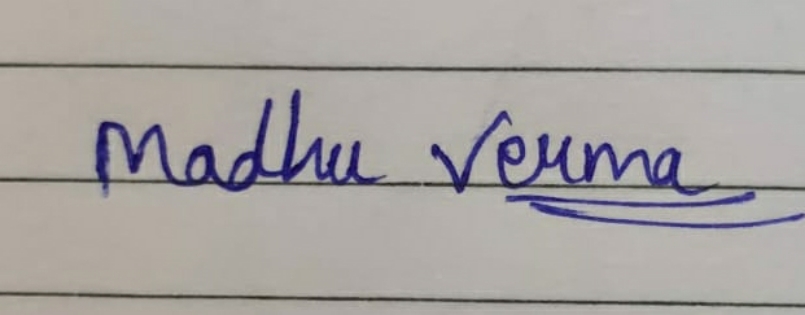 Madhu Verma